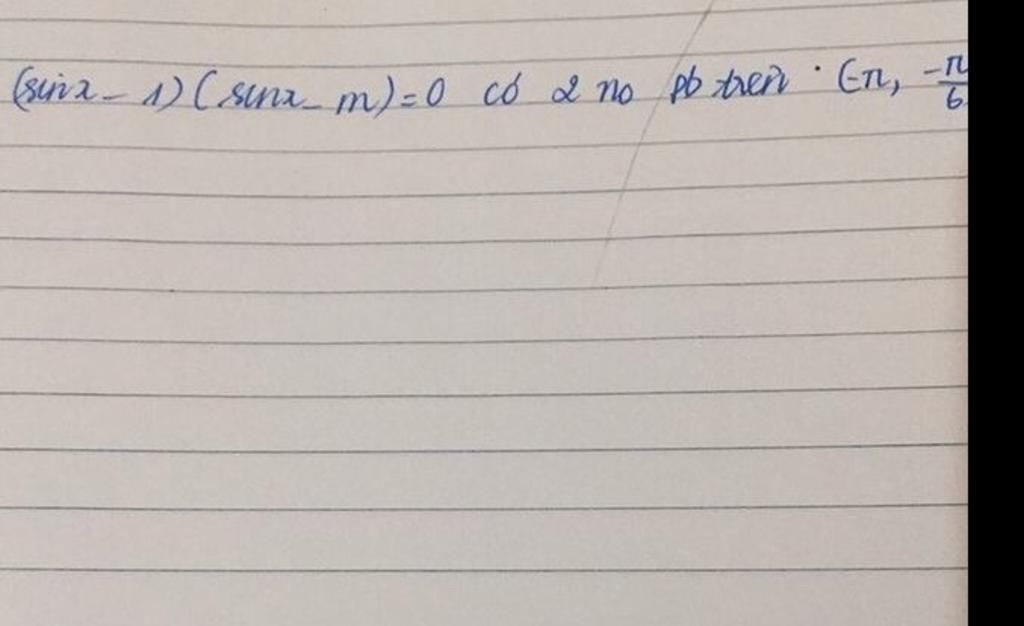 (sinx - 1)(sinx - m) = 0 có 2 no pb trên (-π, -π/6